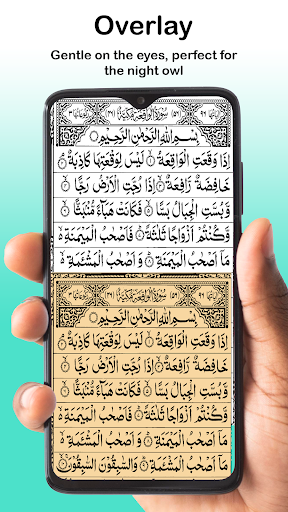 Overlay
Gentle on the eyes, perfect for
the night owl
سورة الواقعة مكية
بِسْمِ اللّٰهِ الرَّحْمٰنِ الرَّحِيْمِ
اِذَا وَقَعَتِ الْوَاقِعَةُ ۙ لَيْسَ لِوَقْعَتِهَا كَاذِبَةٌ ۘ
خَافِضَةٌ رَّافِعَةٌ ۙ اِذَا رُجَّتِ الْاَرْضُ رَجًّا ۙ
وَّبُسَّتِ الْجِبَالُ بَسًّا ۙ فَكَانَتْ هَبَآءً مُّنْۢبَثًّا ۙ
وَّكُنْتُمْ اَزْوَاجًا ثَلٰثَةً ؕ فَاَصْحٰبُ الْمَيْمَنَةِ ۙ
مَاۤ اَصْحٰبُ الْمَيْمَنَةِ ؕ وَاَصْحٰبُ الْمَشْـَٔمَةِ ۙ
سورة الواقعة مكية
بِسْمِ اللّٰهِ الرَّحْمٰنِ الرَّحِيْمِ
اِذَا وَقَعَتِ الْوَاقِعَةُ ۙ لَيْسَ لِوَقْعَتِهَا كَاذِبَةٌ ۘ
خَافِضَةٌ رَّافِعَةٌ ۙ اِذَا رُجَّتِ الْاَرْضُ رَجًّا ۙ
وَّبُسَّتِ الْجِبَالُ بَسًّا ۙ فَكَانَتْ هَبَآءً مُّنْۢبَثًّا ۙ
وَّكُنْتُمْ اَزْوَاجًا ثَلٰثَةً ؕ فَاَصْحٰبُ الْمَيْمَنَةِ ۙ
مَاۤ اَصْحٰبُ الْمَيْمَنَةِ ؕ وَاَصْحٰبُ الْمَشْـَٔمَةِ ۙ
مَاۤ اَصْحٰبُ الْمَشْـَٔمَةِ ؕ وَالسّٰبِقُوْنَ السّٰبِقُوْنَ ۙ